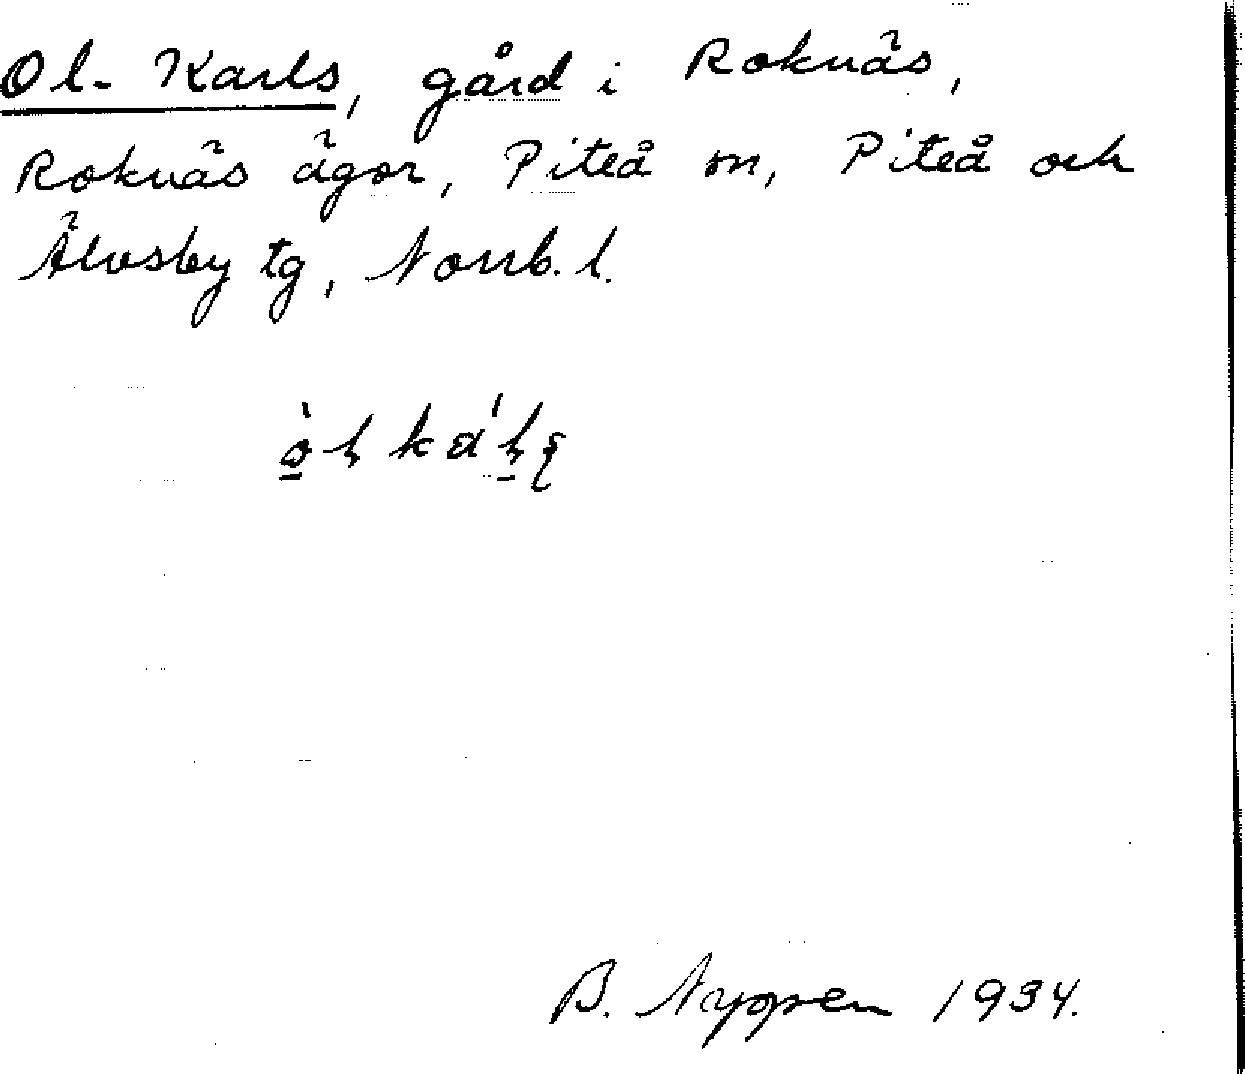 Ol-Karls, gård i Roknäs,
Roknäs ägor, Piteå sn, Piteå och
Älvsby tg, Norrb. l.
B. Nyppen 1934.